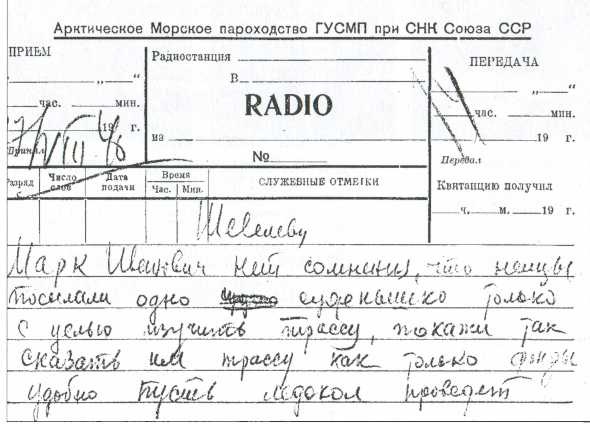 Арктическое Морское пароходство ГУСМП при СНК Союза ССР
ПРИЕМ
„ “
час. мин.
27/VIII 40 г.
Принял
Радиостанция
В
RADIO
из
№
ПЕРЕДАЧА
„ “
час. мин.
19 г.
Передал
Квитанцию получил
ч. м. 19 г.
Разряд
Число слов
Дата подачи
Время
Час. Мин.
СЛУЖЕБНЫЕ ОТМЕТКИ
Шевелеву
Марк Иванович нет сомнения, что немцы
послали одно суденышко только
с целью изучить трассу, покажи так
сказать им трассу как только
удобно пусть ледокол проведет